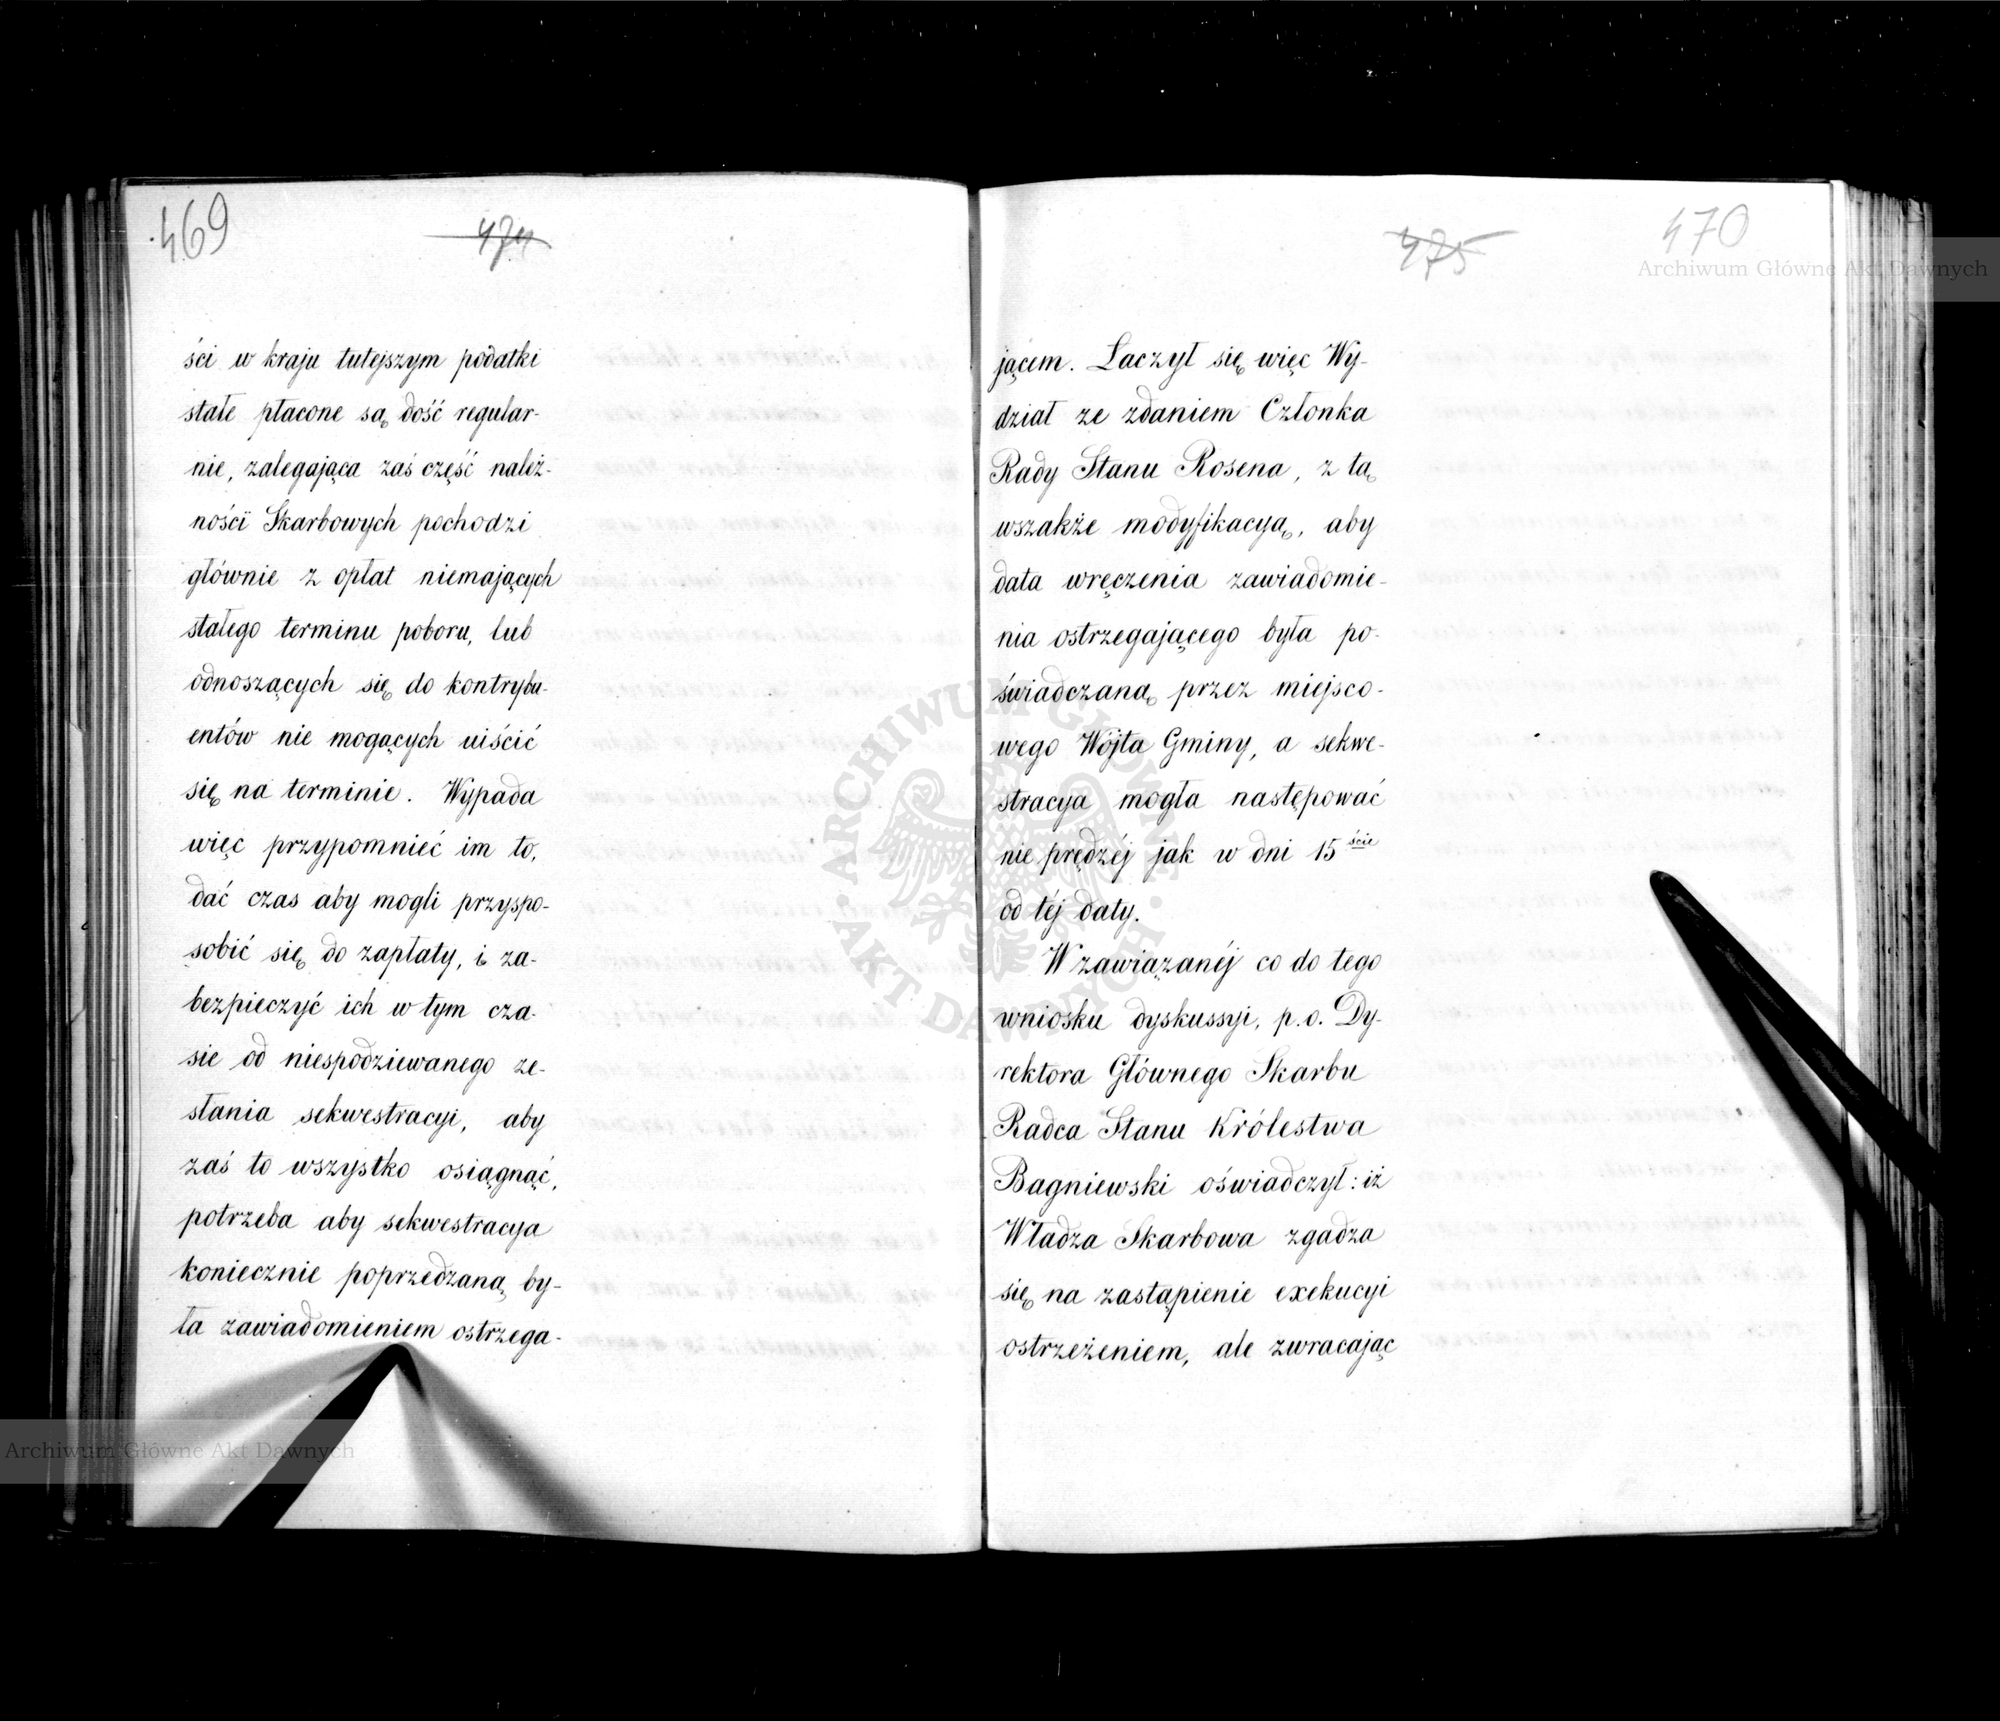 469
474
ści w kraju tutejszym podatki
stałe płacone są dość regular-
nie, zalegająca zaś część należ-
ności Skarbowych pochodzi
głównie z opłat niemających
stałego terminu poboru, lub
odnoszących się do kontrybu-
entów nie mogących uiścić
się na terminie. Wypada
więc przypomnieć im to,
dać czas aby mogli przyspo-
sobić się do zapłaty, i za-
bezpieczyć ich w tym cza-
sie od niespodziewanego ze-
słania sekwestracyi, aby
zaś to wszystko osiągnąć,
potrzeba aby sekwestracya
koniecznie poprzedzaną by-
ła zawiadomieniem ostrzega-
475
470
jącem. Łaczył się więc Wy-
dział ze zdaniem Członka
Rady Stanu Rosena, z tą
wszakże modyfikacyą, aby
data wręczenia zawiadomie-
nia ostrzegającego była po-
świadczaną przez miejsco-
wego Wójta Gminy, a sekwe-
stracya mogła następować
nie prędzéj jak w dni 15ście
od téj daty.
W zawiązanéj co do tego
wniosku dyskussyi, p.o. Dy-
rektora Głównego Skarbu
Radca Stanu Królestwa
Bagniewski oświadczył: iż
Władza Skarbowa zgadza
się na zastąpienie exekucyi
ostrzeżeniem, ale zwracając
Archiwum Główne Akt Dawnych
ARCHIWUM GŁÓWNE
AKT DAWNYCH
Archiwum Główne Akt Dawnych